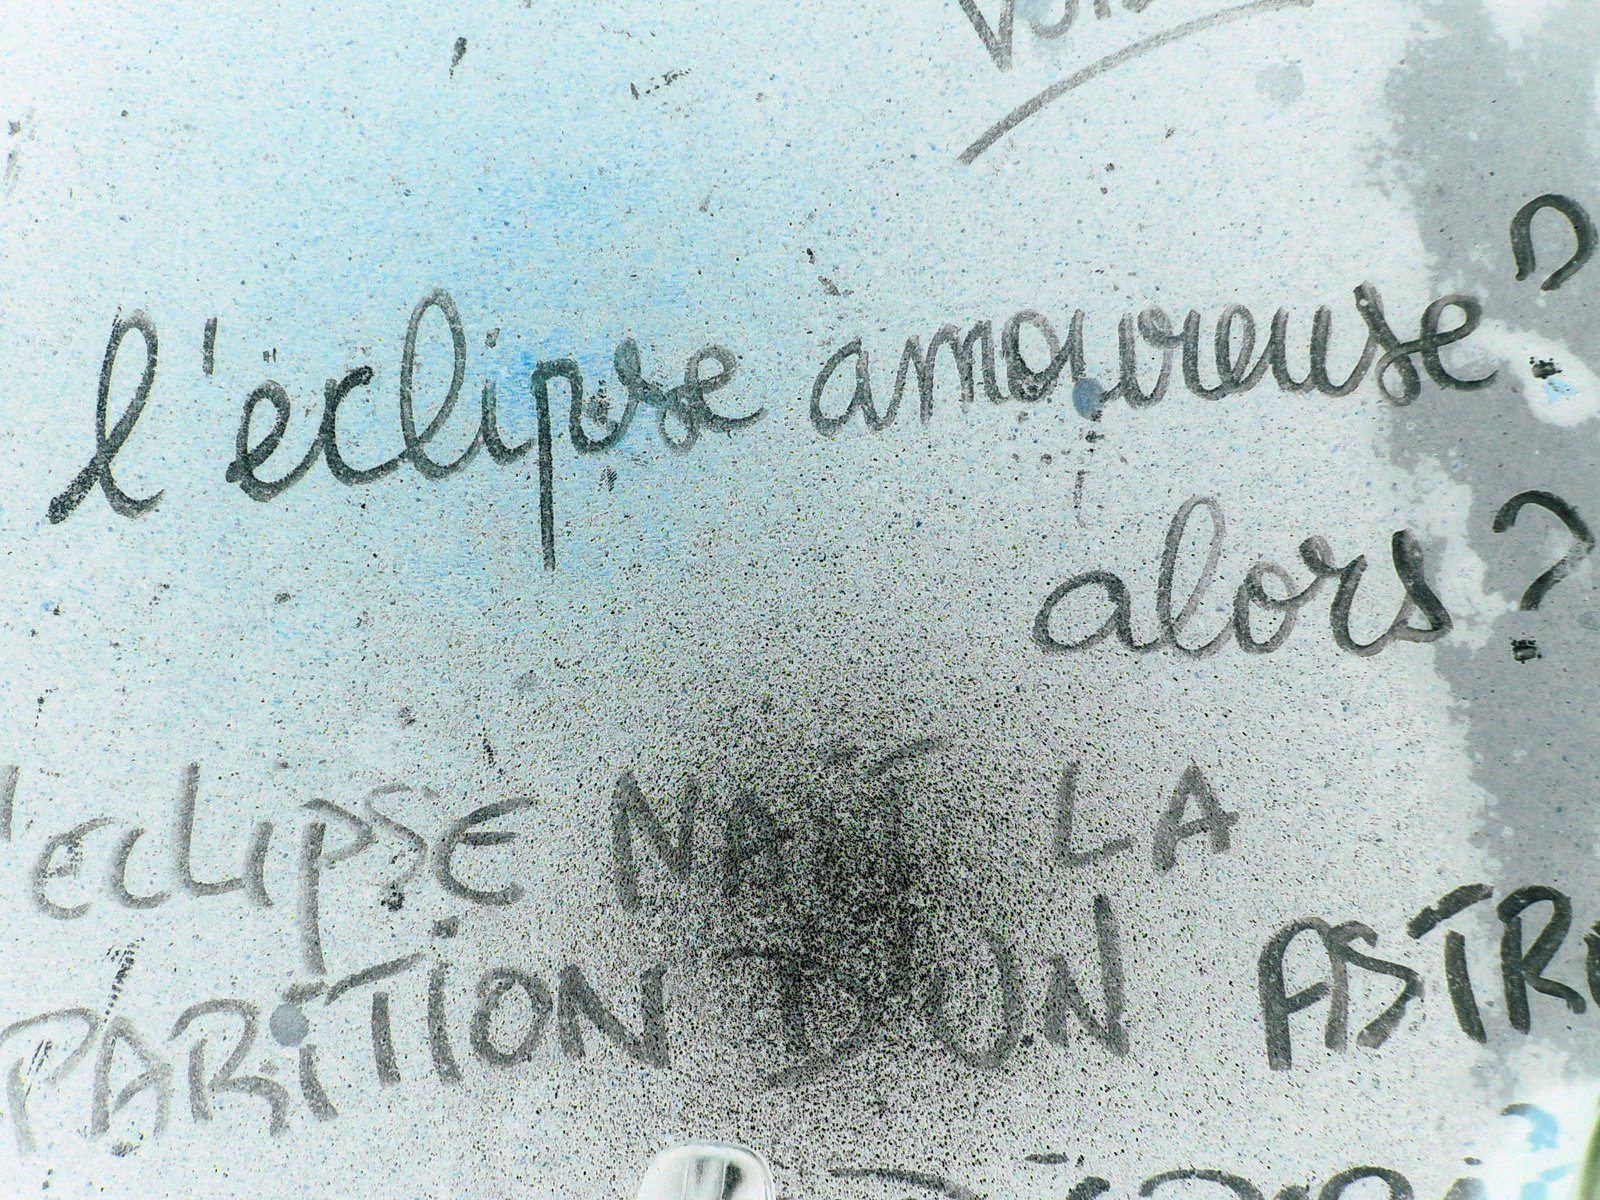 l'éclipse amoureuse?
alors?
'éclipse NAÎT LA
PARITION D'UN ASTRE